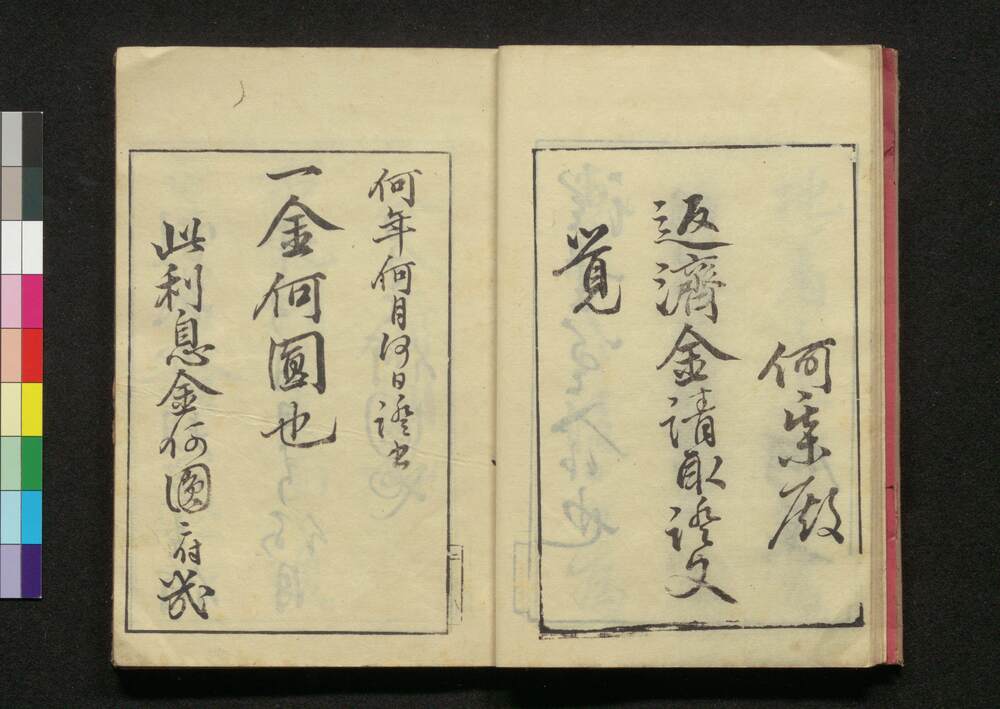 何某殿
返濟金請取證文
覚
何年何月何日證書
一金何圓也
此利息金何圓